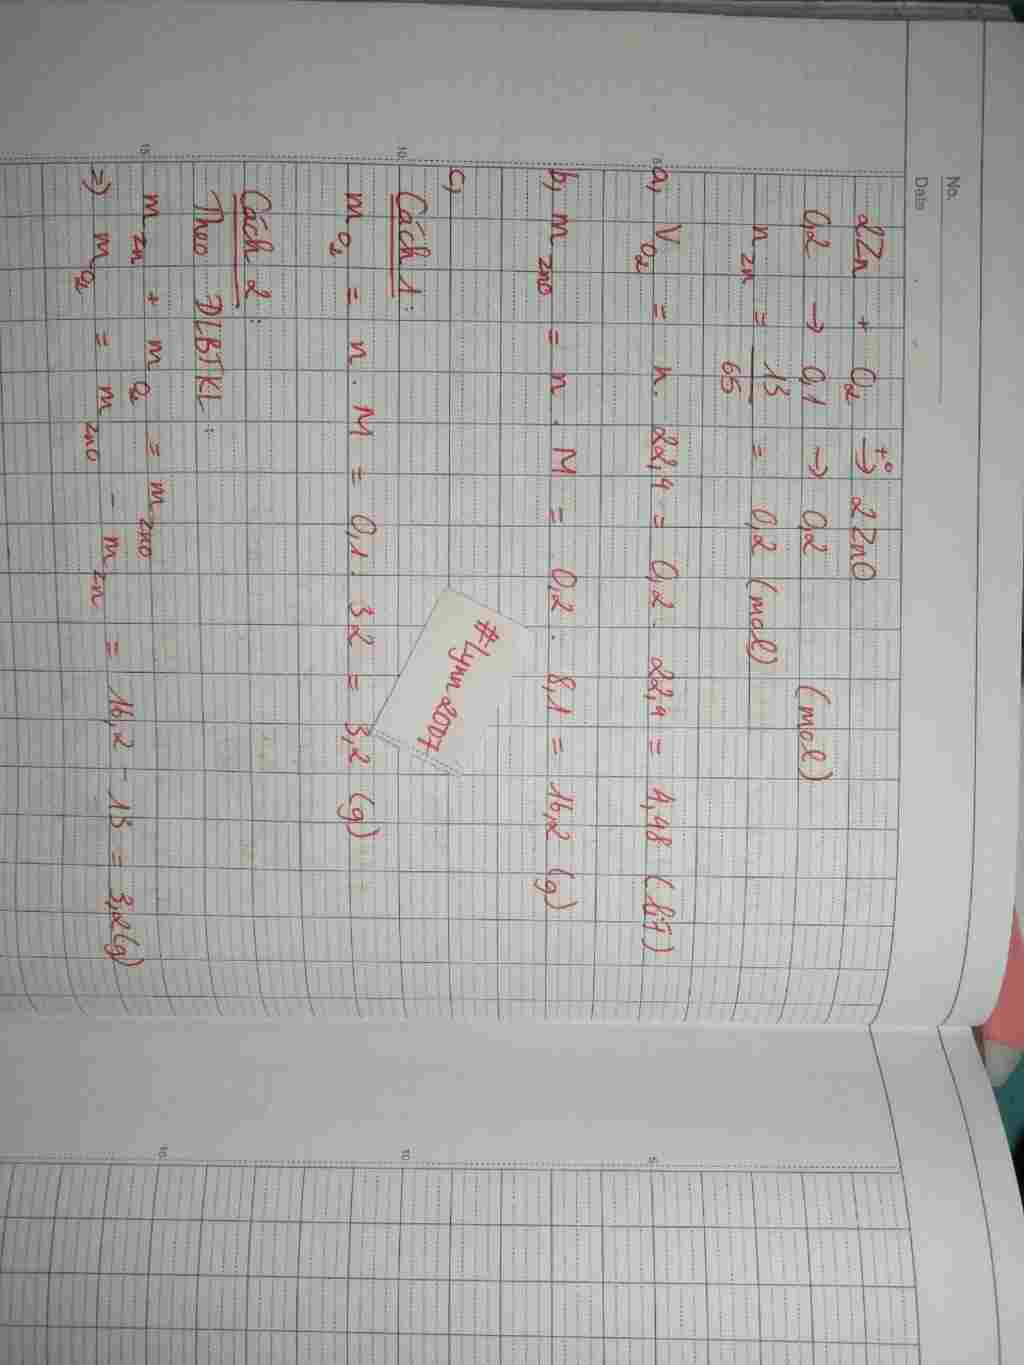 No.
Date
2Zn + O₂ t°→ 2ZnO
0,2 → 0,1 → 0,2 (mol)
n Zn = 13/65 = 0,2 (mol)
a, V O₂ = n. 22,4 = 0,2. 22,4 = 4,48 (lít)
b, m ZnO = n. M = 0,2. 8,1 = 16,2 (g)
c,
Cách 1:
m O₂ = n. M = 0,1. 32 = 3,2 (g)
Cách 2:
Theo DLBTKL:
m Zn + m O₂ = m ZnO
=) m O₂ = m ZnO - m Zn = 16,2 - 13 = 3,2(g)
#Lynn2007
5
10
15
5
10